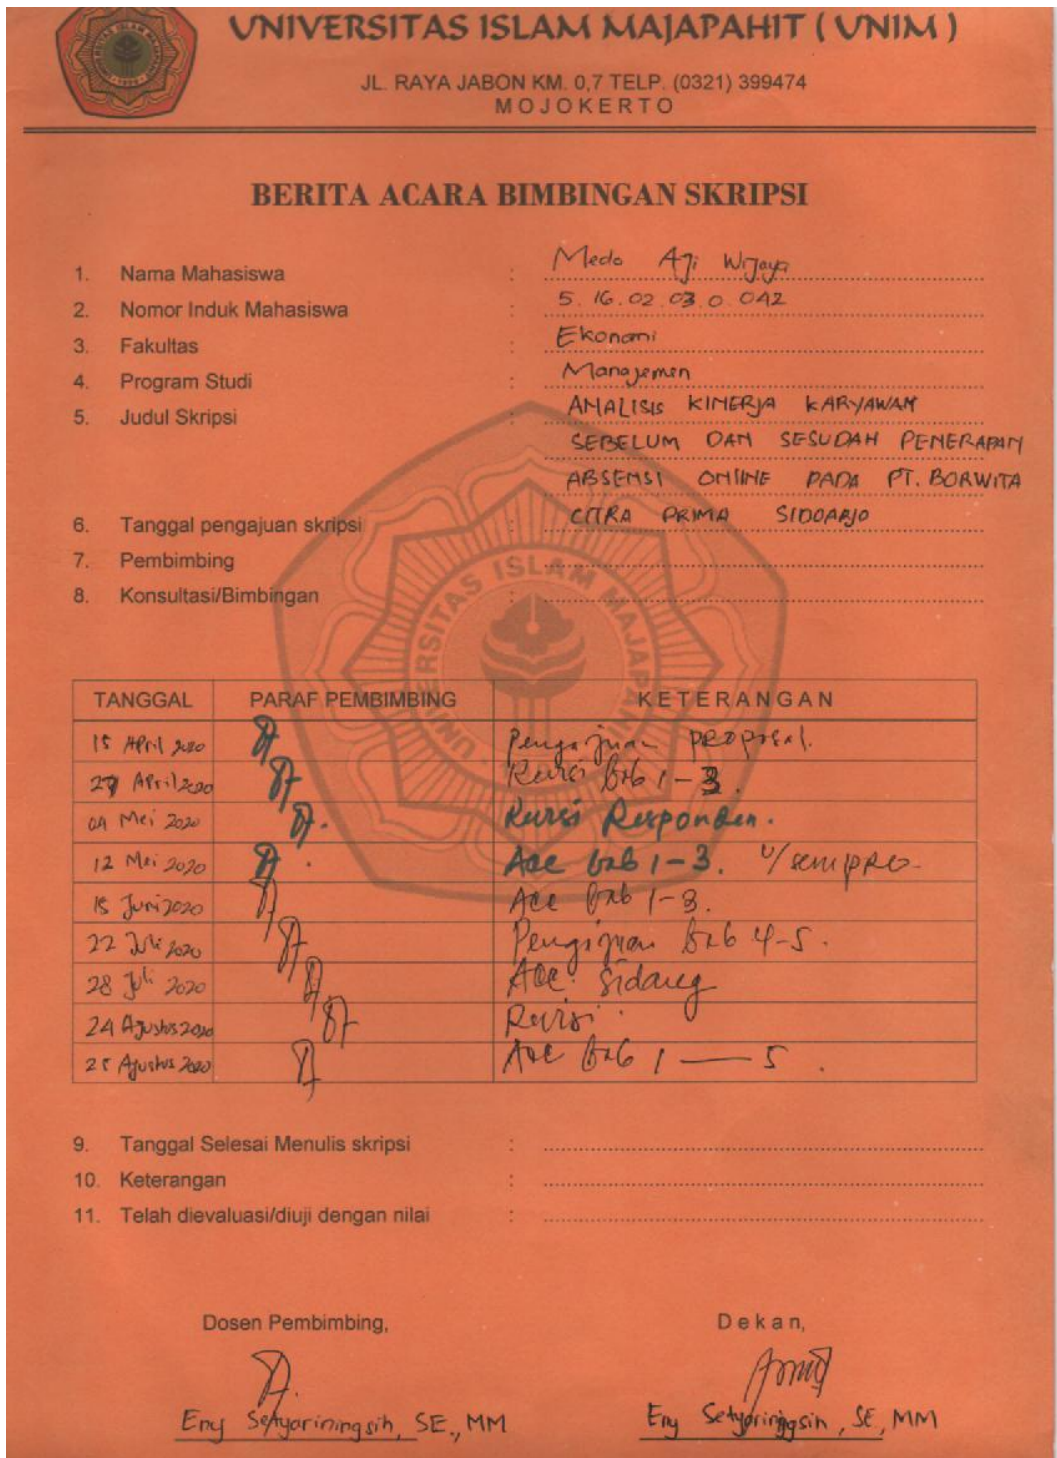 UNIVERSITAS ISLAM MAJAPAHIT ( UNIM )
JL. RAYA JABON KM. 0,7 TELP. (0321) 399474
MOJOKERTO
BERITA ACARA BIMBINGAN SKRIPSI
1. Nama Mahasiswa : Medo Aji Wijaya
2. Nomor Induk Mahasiswa : 5.16.02.03.0.042
3. Fakultas : Ekonomi
4. Program Studi : Manajemen
5. Judul Skripsi : ANALISIS KINERJA KARYAWAN
SEBELUM DAN SESUDAH PENERAPAN
ABSENSI ONLINE PADA PT. BORWITA
6. Tanggal pengajuan skripsi : CITRA PRIMA SIDOARJO
7. Pembimbing :
8. Konsultasi/Bimbingan :
UNIVERSITAS ISLAM MAJAPAHIT
TANGGAL PARAF PEMBIMBING KETERANGAN
15 April 2020 Pengajuan proposal.
27 April 2020 Revisi bab 1-3.
04 Mei 2020 Revisi Responden.
12 Mei 2020 Acc bab 1-3. u/ sempro
15 Juni 2020 Acc bab 1-3.
22 Juli 2020 Pengajuan bab 4-5.
28 Juli 2020 Acc. Sidang
24 Agustus 2020 Revisi.
25 Agustus 2020 Acc bab 1 — 5.
9. Tanggal Selesai Menulis skripsi :
10. Keterangan :
11. Telah dievaluasi/diuji dengan nilai :
Dosen Pembimbing, Dekan,
Eny Setyariningsih, SE., MM Eny Setyariningsih, SE., MM